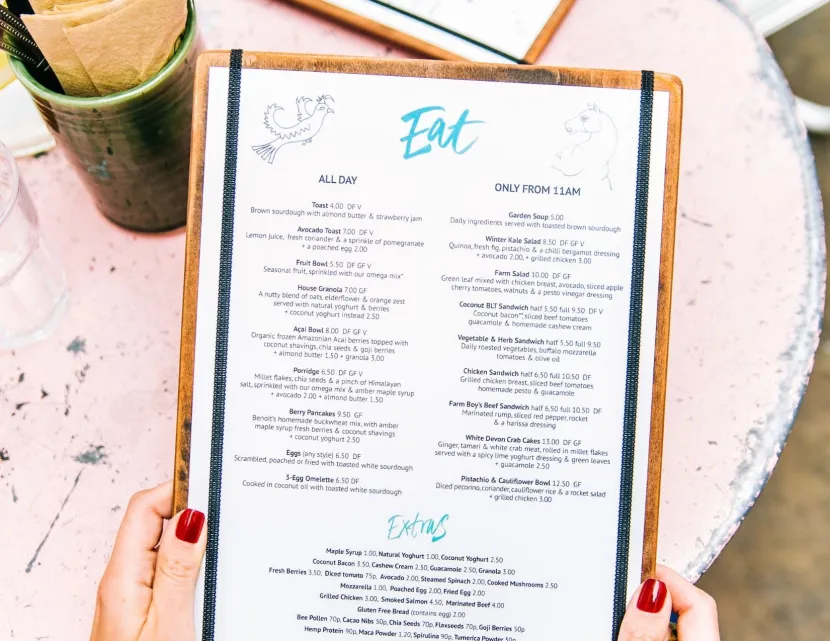 Eat
ALL DAY
Toast 4.00 DF V
Brown sourdough with almond butter & strawberry jam
Avocado Toast 7.00 DF V
Lemon juice, fresh coriander & a sprinkle of pomegranate
+ a poached egg 2.00
Fruit Bowl 5.50 DF GF V
Seasonal fruit, sprinkled with our omega mix*
House Granola 7.00 GF
A nutty blend of oats, elderflower & orange zest
served with natural yoghurt & berries
+ coconut yoghurt instead 2.50
Açai Bowl 8.00 DF GF V
Organic frozen Amazonian Acai berries topped with
coconut shavings, chia seeds & goji berries
+ almond butter 1.50 + granola 3.00
Porridge 6.50 DF GF V
Millet flakes, chia seeds & a pinch of Himalayan
salt, sprinkled with our omega mix & amber maple syrup
+ avocado 2.00 + almond butter 1.50
Berry Pancakes 9.50 GF
Benoit's homemade buckwheat mix, with amber
maple syrup fresh berries & coconut shavings
+ coconut yoghurt 2.50
Eggs (any style) 6.50 DF
Scrambled, poached or fried with toasted white sourdough
3-Egg Omelette 6.50 DF
Cooked in coconut oil with toasted white sourdough
ONLY FROM 11AM
Garden Soup 5.00
Daily ingredients served with toasted brown sourdough
Winter Kale Salad 8.50 DF GF V
Quinoa, fresh fig, pistachio & a chilli bergamot dressing
+ avocado 2.00, + grilled chicken 3.00
Farm Salad 10.00 DF GF
Green leaf mixed with chicken breast, avocado, sliced apple
cherry tomatoes, walnuts & a pesto vinegar dressing
Coconut BLT Sandwich half 5.50 full 9.50 DF V
Coconut bacon**, sliced beef tomatoes
guacamole & homemade cashew cream
Vegetable & Herb Sandwich half 5.50 full 9.50
Daily roasted vegetables, buffalo mozzarella
tomatoes & olive oil
Chicken Sandwich half 6.50 full 10.50 DF
Grilled chicken breast, sliced beef tomatoes
homemade pesto & guacamole
Farm Boy's Beef Sandwich half 6.50 full 10.50 DF
Marinated rump, sliced red pepper, rocket
& a harissa dressing
White Devon Crab Cakes 13.00 DF GF
Ginger, tamari & white crab meat, rolled in millet flakes
served with a spicy lime yoghurt dressing & green leaves
+ guacamole 2.50
Pistachio & Cauliflower Bowl 12.50 GF
Diced pecorino, coriander, cauliflower rice & a rocket salad
+ grilled chicken 3.00
Extras
Maple Syrup 1.00, Natural Yoghurt 1.00, Coconut Yoghurt 2.50
Coconut Bacon 3.50, Cashew Cream 2.50, Guacamole 2.50, Granola 3.00
Fresh Berries 3.50, Diced tomato 75p, Avocado 2.00, Steamed Spinach 2.00, Cooked Mushrooms 2.50
Mozzarella 1.00, Poached Egg 2.00, Fried Egg 2.00
Grilled Chicken 3.00, Smoked Salmon 4.50, Marinated Beef 4.00
Gluten Free Bread (contains egg) 2.00
Bee Pollen 70p, Cacao Nibs 50p, Chia Seeds 70p, Flaxseeds 70p, Goji Berries 50p
Hemp Protein 90p, Maca Powder 1.20, Spirulina 90p, Tumerica Powder